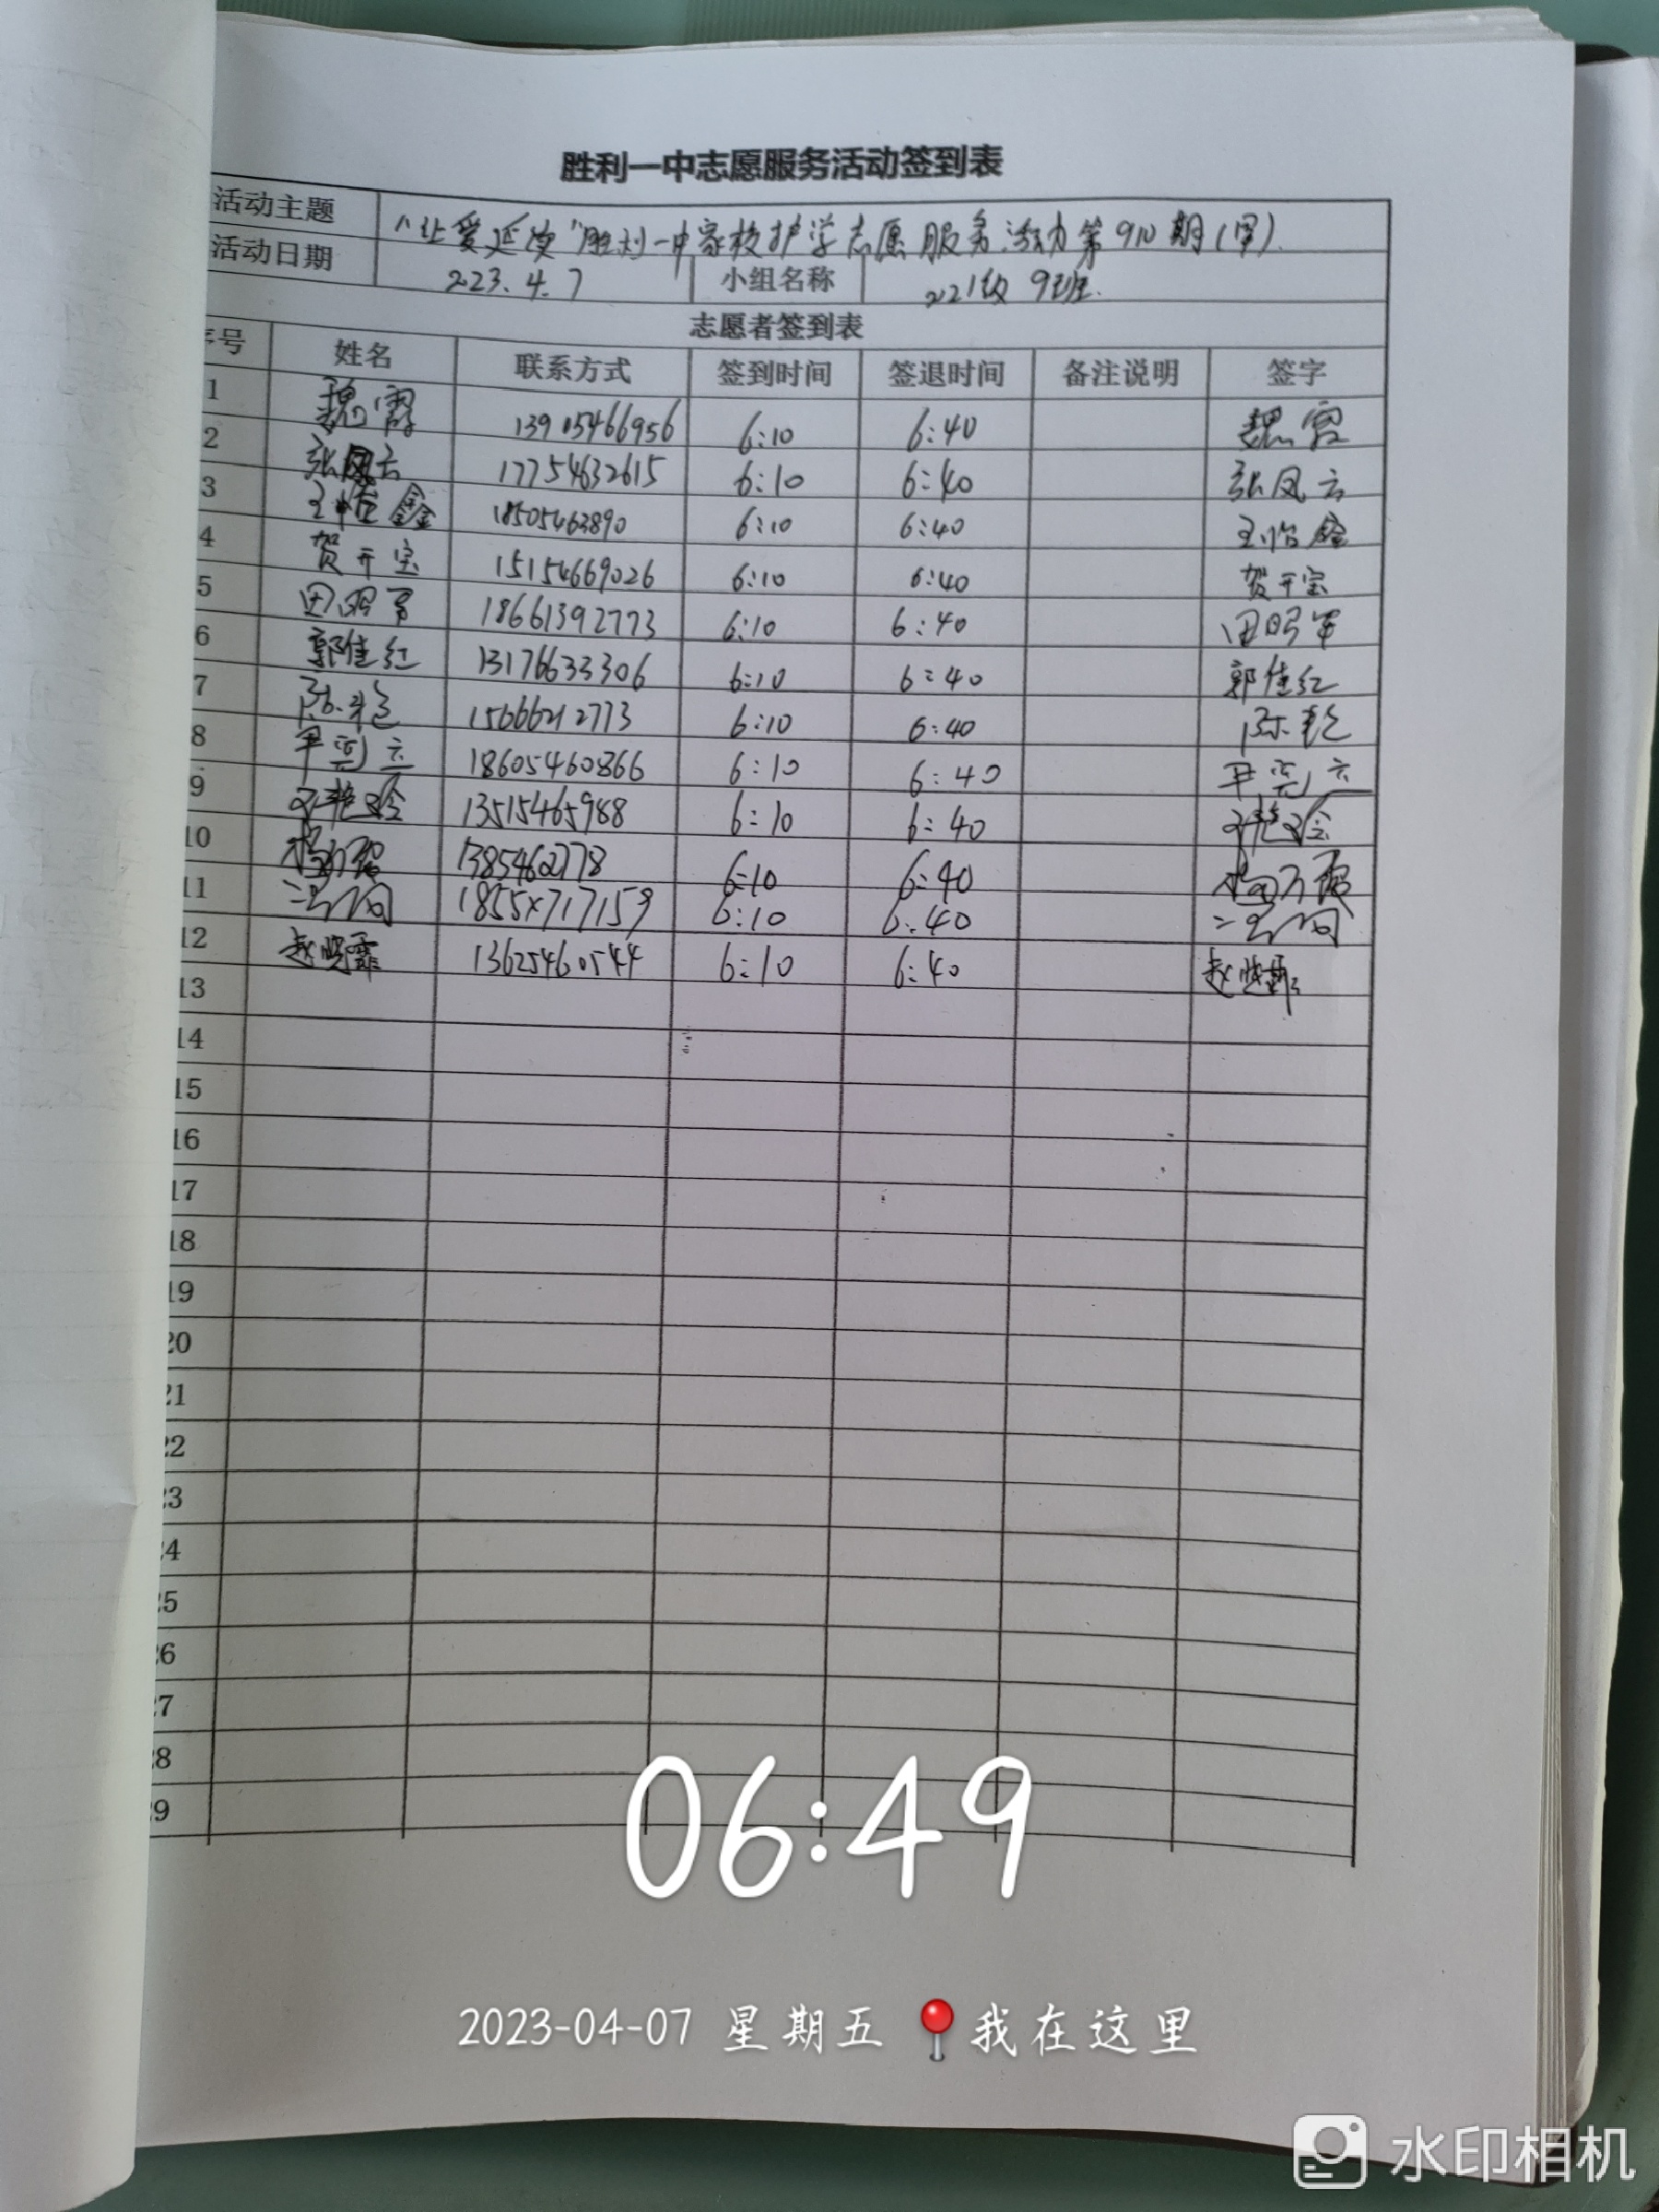 胜利一中志愿服务活动签到表
活动主题 "让爱延续"胜利一中家校护学志愿服务活动第910期(早).
活动日期 2023.4.7 小组名称 2021级 9班.
志愿者签到表
序号 姓名 联系方式 签到时间 签退时间 备注说明 签字
1 魏霞 13905466956 6:10 6:40 魏霞
2 张凤云 17754632615 6:10 6:40 张凤云
3 王怡鑫 18505463890 6:10 6:40 王怡鑫
4 贺开宝 15154669026 6:10 6:40 贺开宝
5 田明军 18661392773 6:10 6:40 田明军
6 郭佳红 13176633306 6:10 6:40 郭佳红
7 陈艳 15666212773 6:10 6:40 陈艳
8 18605460866 6:10 6:40
9 13515465988 6:10 6:40
10 6:10 6:40
11 6:10 6:40
12 赵晓霏 13625460544 6:10 6:40 赵晓霏
13
14
15
16
17
18
19
20
21
22
23
24
25
26
27
28
29
06:49
2023-04-07 星期五 我在这里
水印相机